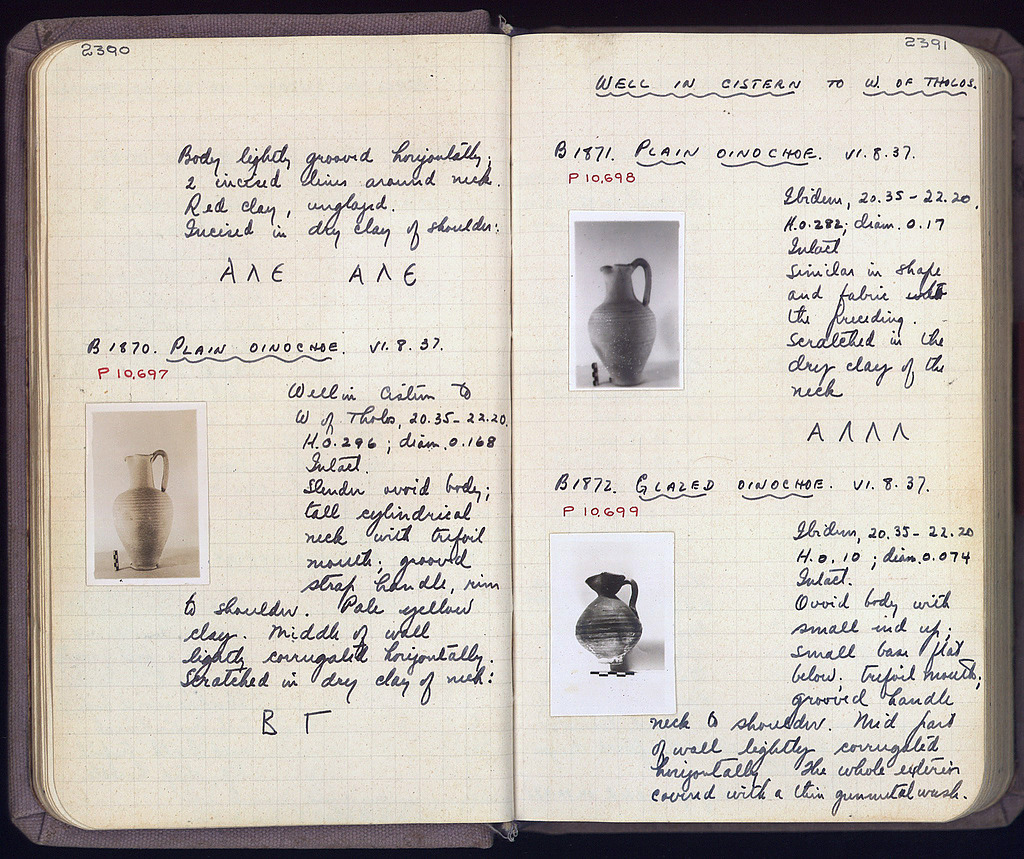 2390
Body lightly grooved horizontally;
2 incised lines around neck.
Red clay, unglazed.
Incised in dry clay of shoulder:
Α Λ Ε Α Λ Ε
B 1870. PLAIN OINOCHOE. VI. 8. 37.
P 10,697
Well in Cistern to
W of Tholos, 20.35 - 22.20.
H. 0.296 ; diam. 0.168
Intact.
Slender ovoid body;
tall cylindrical
neck with trefoil
mouth; grooved
strap handle, rim
to shoulder. Pale yellow
clay. Middle of wall
lightly corrugated horizontally.
Scratched in dry clay of neck:
Β Γ
2391
WELL IN CISTERN TO W. OF THOLOS.
B 1871. PLAIN OINOCHOE. VI. 8. 37.
P 10,698
Ibidem, 20.35 - 22.20.
H. 0.282; diam. 0.17
Intact
Similar in shape
and fabric with
the preceding.
Scratched in the
dry clay of the
neck
Α Λ Λ Λ
B 1872. GLAZED OINOCHOE. VI. 8. 37.
P 10,699
Ibidem, 20.35 - 22.20
H. 0.10 ; diam. 0.074
Intact.
Ovoid body with
small end up;
small base flat
below; trefoil mouth;
grooved handle
neck to shoulder. Mid part
of wall lightly corrugated
horizontally The whole exterior
covered with a thin gunmetal wash.